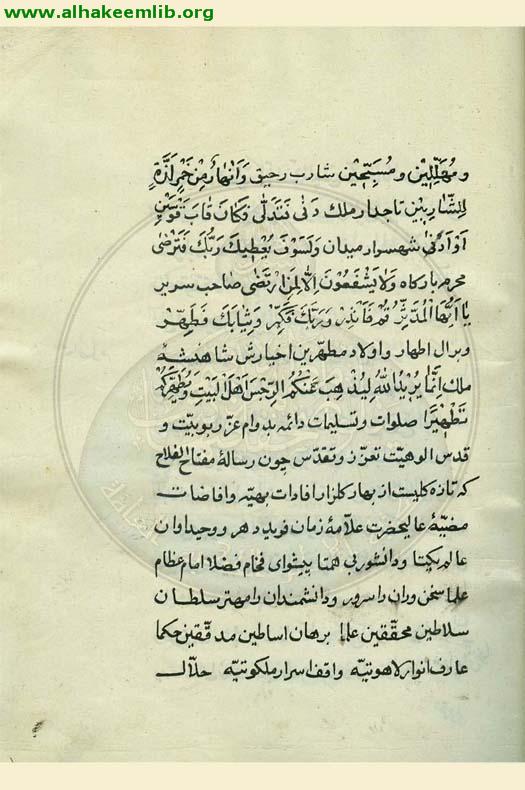 www.alhakeemlib.org
و مُهَلِّلِيْن و مُسَبِّحِيْن شارب رحيق وَ اَنْهَارٌ مِنْ خَمْرٍ لَذَّةٍ
لِلشَّارِبِيْنَ تاجدار ملك دَنٰى فَتَدَلّٰى فَكَانَ قَابَ قَوْسَيْنِ
اَوْ اَدْنٰى شهسوار ميدان وَ لَسَوْفَ يُعْطِيْكَ رَبُّكَ فَتَرْضٰى
محرم باركاه وَ لَا يَشْفَعُوْنَ اِلَّا لِمَنِ ارْتَضٰى صاحب سرير
يَا اَيُّهَا الْمُدَّثِّرُ قُمْ فَاَنْذِرْ وَ رَبَّكَ فَكَبِّرْ وَ ثِيَابَكَ فَطَهِّرْ
و بر ال اطهار و اولاد مطهّرين اخيارش شاهنشه
ملك اِنَّمَا يُرِيْدُ اللّٰهُ لِيُذْهِبَ عَنْكُمُ الرِّجْسَ اَهْلَ الْبَيْتِ وَ يُطَهِّرَكُمْ
تَطْهِيْرًا صلوات و تسليمات دائمه بدوام عزّ ربوبيّت و
قدس الوهيّت تعزّز و تقدّس چون رسالهٔ مفتاح الفلاح
كه تازه كليست از بهار كلزار افادات بهيّه و افاضات
مضيّهٔ عاليحضرت علّامهٔ زمان فريد دهر و وحيد اوان
عالم يكتا و دانشور بي همتا پيشواى فخام فضلا امام عظام
علما سخن وران را سرور و دانشمندان را مهتر سلطان
سلاطين محقّقين علما برهان اساطين مدقّقين حكما
عارف انوار لاهوتيّه واقف اسرار ملكوتيّه حلّال